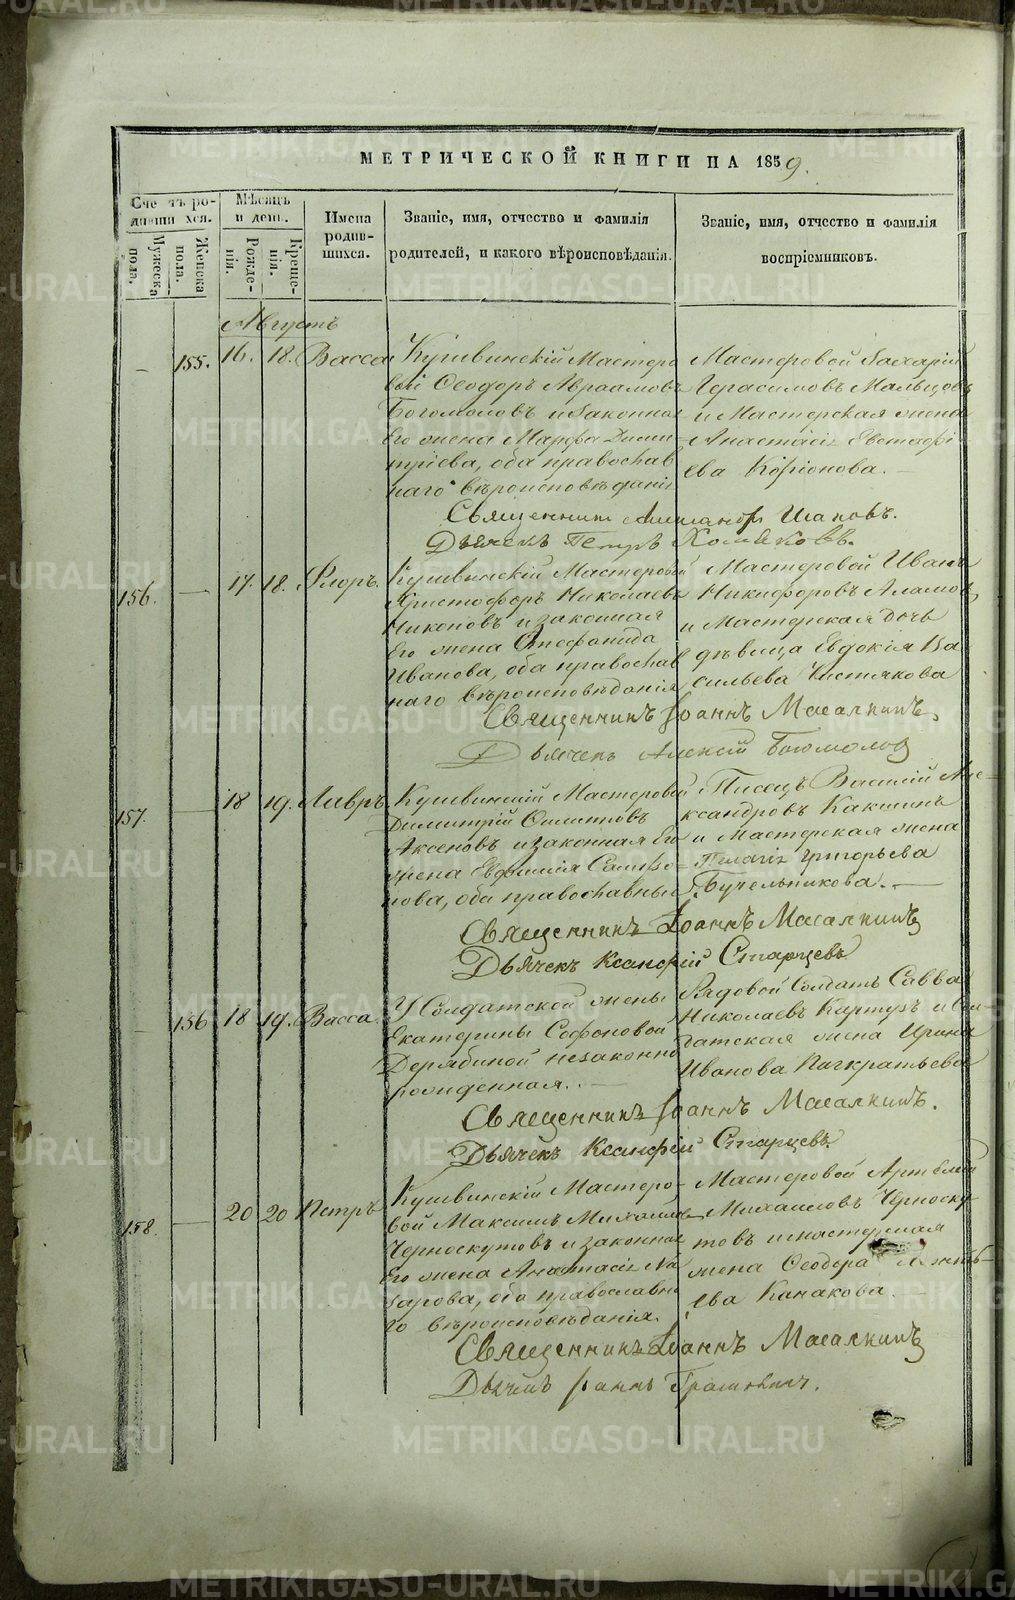 МЕТРИЧЕСКОЙ КНИГИ НА 1859.
Счетъ родившихся.
Мужеска пола.
Женска пола.
Мѣсяцъ и день.
Рожденія.
Крещенія.
Имена родившихся.
Званіе, имя, отчество и фамилія
родителей, и какого вѣроисповѣданія.
Званіе, имя, отчество и фамилія
воспріемниковъ.
Августъ
155. 16. 18. Васса
Кушвинскій Мастеро
вой Ѳеодоръ Авраамовъ
Богомоловъ и законная
Его жена Марфа Дими
тріева, оба православ
наго вѣроисповѣданія
Мастеровой Захарій
Герасимовъ Мальцовъ
и Мастерская жена
Анастасія Евстафі
ева
Священникъ
Дьячекъ Петръ Хомяковъ.
156. 17. 18. Флоръ.
Кушвинскій Мастеровой
Христофоръ Николаевъ
Никоновъ и законная
Его жена Стефанида
Иванова, оба православ
наго вѣроисповѣданія
Мастеровой Иванъ
Никифоровъ
и Мастерская дочь
дѣвица Евдокія Ва
сильева Чистякова
Священникъ Іоаннъ Масалкинъ.
Дьячекъ Алексій Богомолов
157. 18 19. Лавръ
Кушвинскій Мастеровой
Димитрій
Аксеновъ и законная Его
жена Евфимія
нова, оба православные
Писецъ Василій Але-
ксандровъ Какшинъ
и Мастерская жена
Пелагія Григорьева
Бучельникова.
Священникъ Іоаннъ Масалкинъ
Дьячекъ Ксанфій Старцевъ
156 18 19. Васса
У Солдатской жены
Екатерины Софоновой
Дерябиной незаконно
рожденная.
Рядовой Солдатъ Савва
Николаевъ Картузъ и Сол-
датская жена Ирина
Иванова Панкратьева
Священникъ Іоаннъ Масалкинъ.
Дьячекъ Ксанфій Старцевъ.
158. 20 20 Петръ
Кушвинскій Мастеро-
вой Максимъ Михайлов
Черноскутовъ и законная
Его жена Анастасія На
зарова, оба православна
го вѣроисповѣданія.
Мастеровой Артемій
Михаиловъ Черноску-
товъ и мастерская
жена Ѳеодора
ева Канакова.
Священникъ Іоаннъ Масалкинъ
Дьячекъ Іоаннъ
METRIKI.GASO-URAL.RU